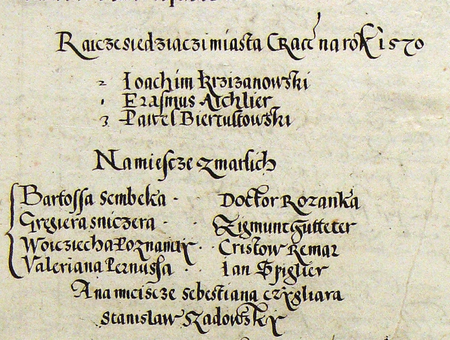 Raicze siedzączi miasta Crac̃ na rok 1570
2 Ioachim Krzizanowski
1 Erasmus Aichlier
3 Pawel Biertultowski
Na miescze zmarlich
Bartossa Sembeka · Doctor Rozanka
Gregiera sniczera · Zigmunt Gutteter
Woicziecha Poznanczyk · · Cristow Remar
Valeriana Pernussa · Ian Spiglier
A na mieiscze sebestiana czyrliara
Stanislaw Szadowski